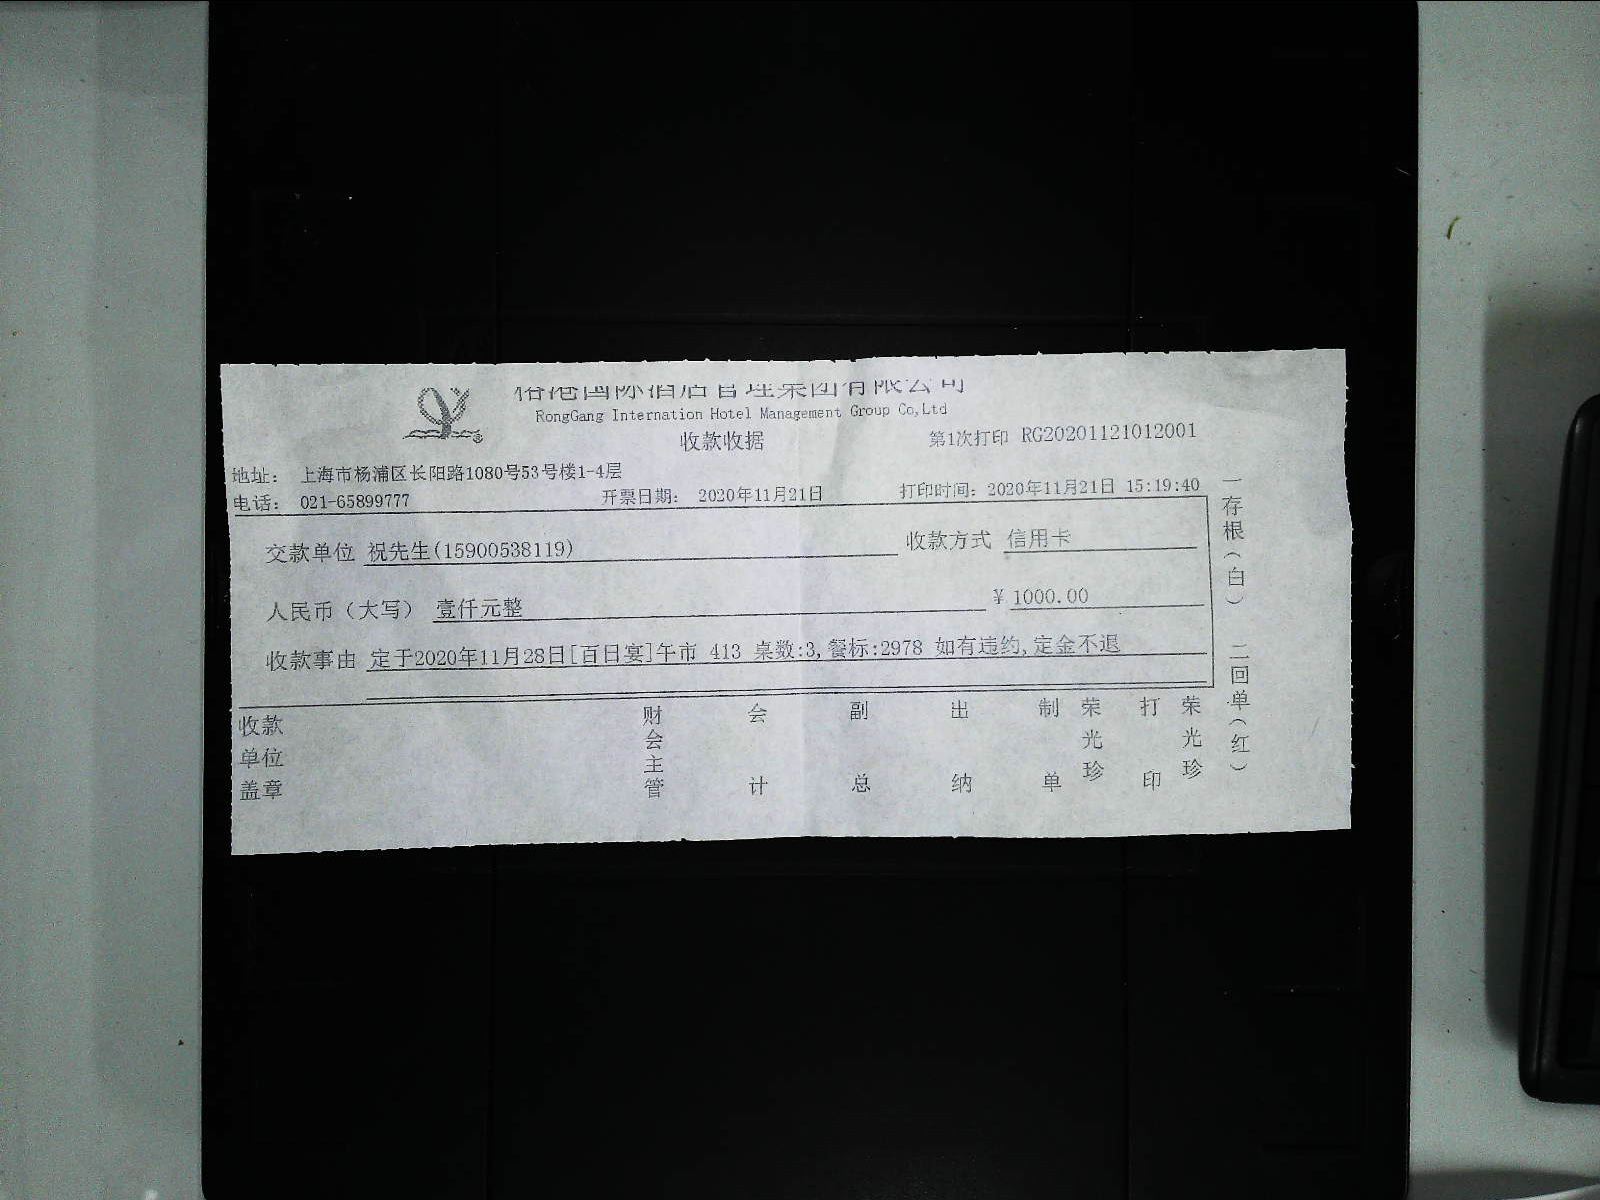 国际酒店管理集团有限公司
RongGang Internation Hotel Management Group Co,Ltd
收款收据
第1次打印 RG20201121012001
地址： 上海市杨浦区长阳路1080号53号楼1-4层
电话： 021-65899777 开票日期： 2020年11月21日 打印时间：2020年11月21日 15:19:40
交款单位 祝先生(15900538119) 收款方式 信用卡
人民币（大写） 壹仟元整 ¥ 1000.00
收款事由 定于2020年11月28日[百日宴]午市 413 桌数:3,餐标:2978 如有违约,定金不退
收款单位盖章 财会主管 会计 副总 出纳 制单 荣光珍 打印 荣光珍
一存根（白） 二回单（红）